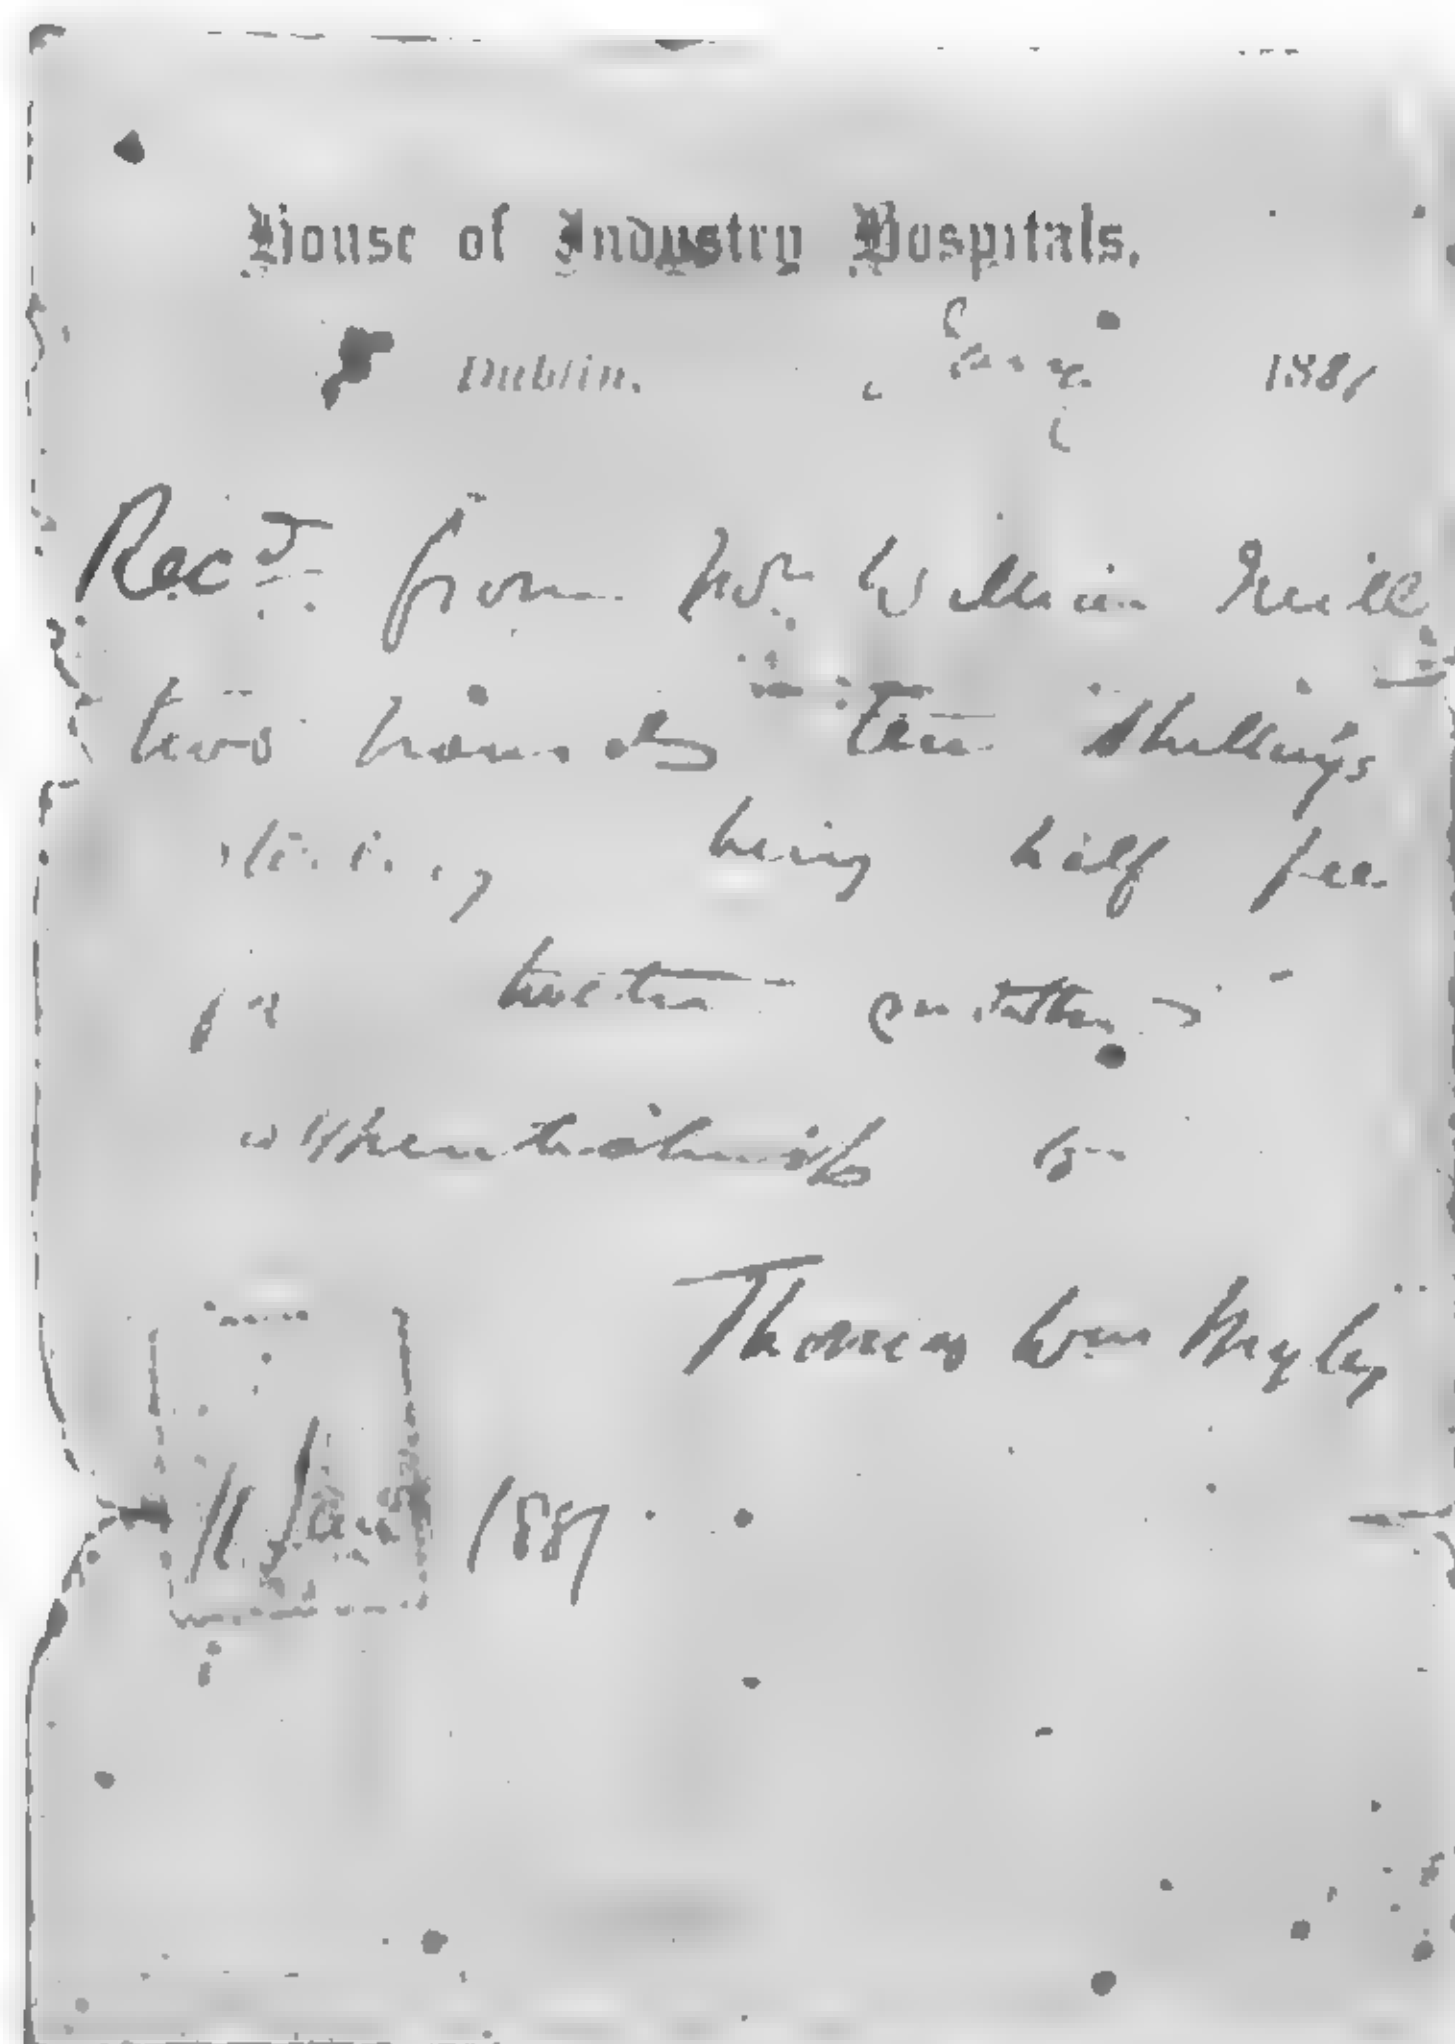 House of Industry Hospitals,
Dublin. Jany 1881
Recd from Mr William Neill
two pounds ten shillings
sterling being half fee
for
by
Thomas Wm Myles
11 Jany 1887